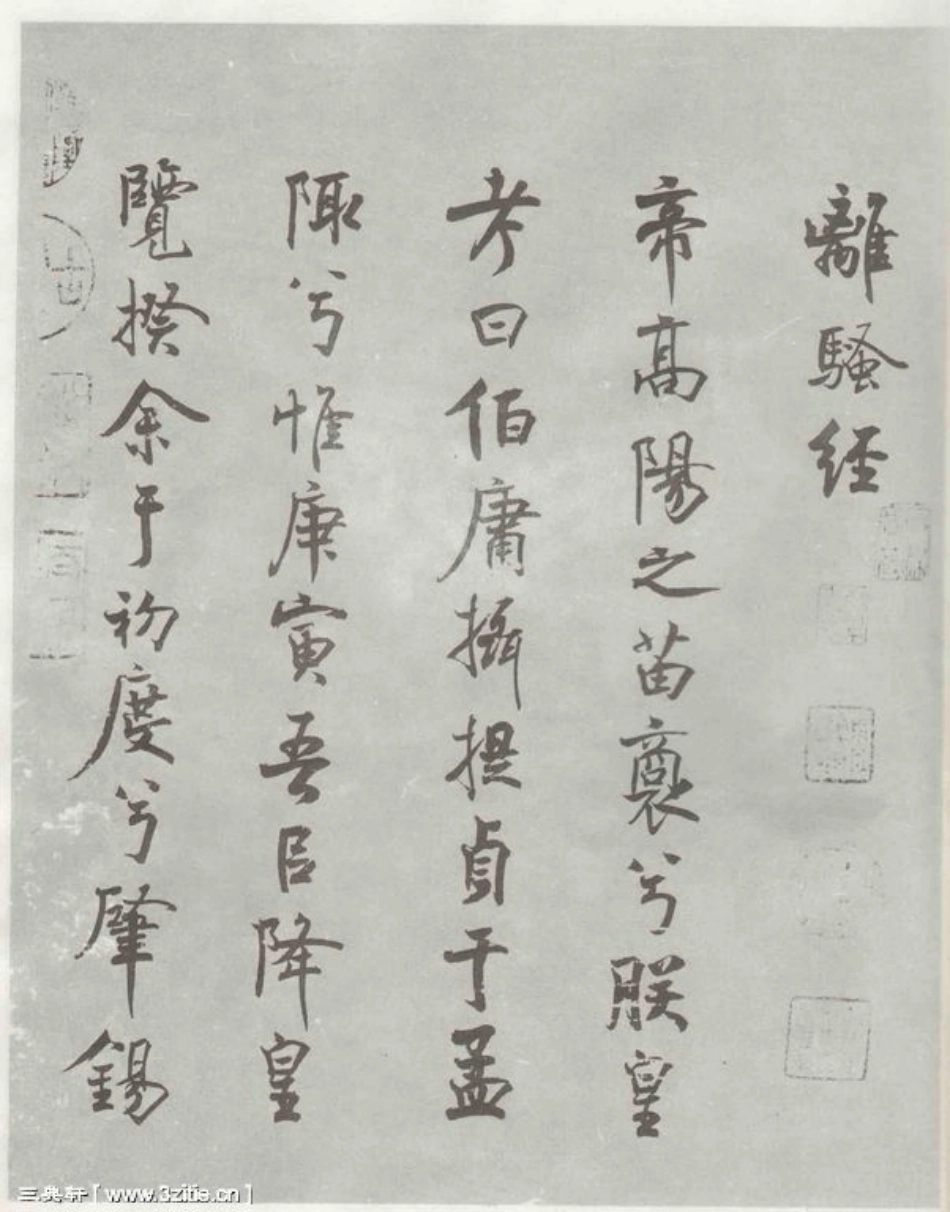 離騷經
帝高陽之苗裔兮朕皇
考曰伯庸攝提貞于孟
陬兮惟庚寅吾㠯降皇
覽揆余于初度兮肇錫
三典轩［www.3zitie.cn］